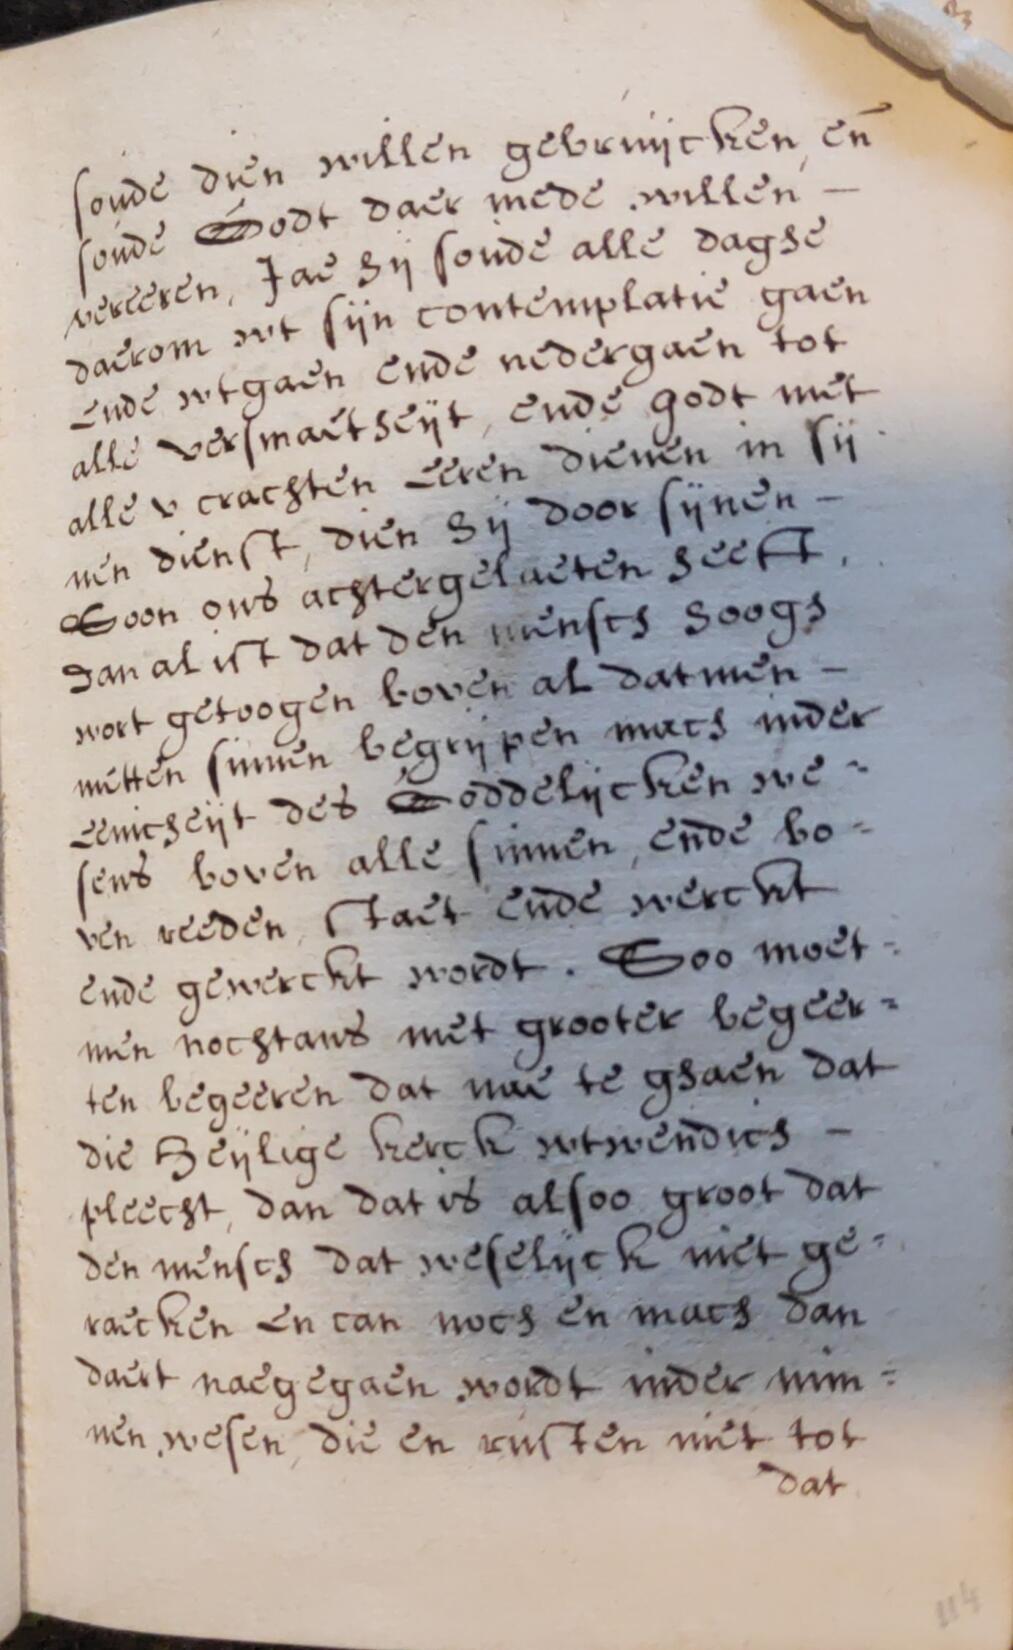 soude dien willen gebruijcken, en̄
soude Godt daer mede willen –
vereeren, Jae hij soude alle daghe
daerom wt sijn contemplatie gaen
ende wtgaen ende nedergaen tot
alle versmaetheijt, ende godt met
alle v crachten eeren dienen in sij
nen dienst, dien hij door sijnen –
Soon ons achtergelaeten heeft,
Dan al ist dat den mensch hoogh
wort getoogen boven al datmen –
metten sinnen begrijpen mach inder
eenicheijt des Goddelijcken we=
sens boven alle sinnen, ende bo=
ven reeden, staet ende werckt
ende gewerckt wordt. Soo moet=
men nochtans met grooter begeer=
ten begeeren dat nae te ghaen dat
die Heijlige kerck wtwendich –
pleecht, dan dat is alsoo groot dat
den mensch dat weselijck niet ge=
raecken en can noch en mach dan
daert naegegaen wordt inder min=
nen wesen, die en rusten niet tot
dat
114